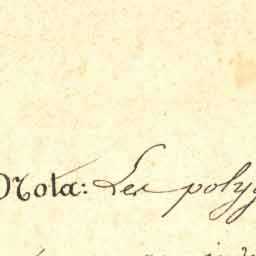 Nota: Les polyg